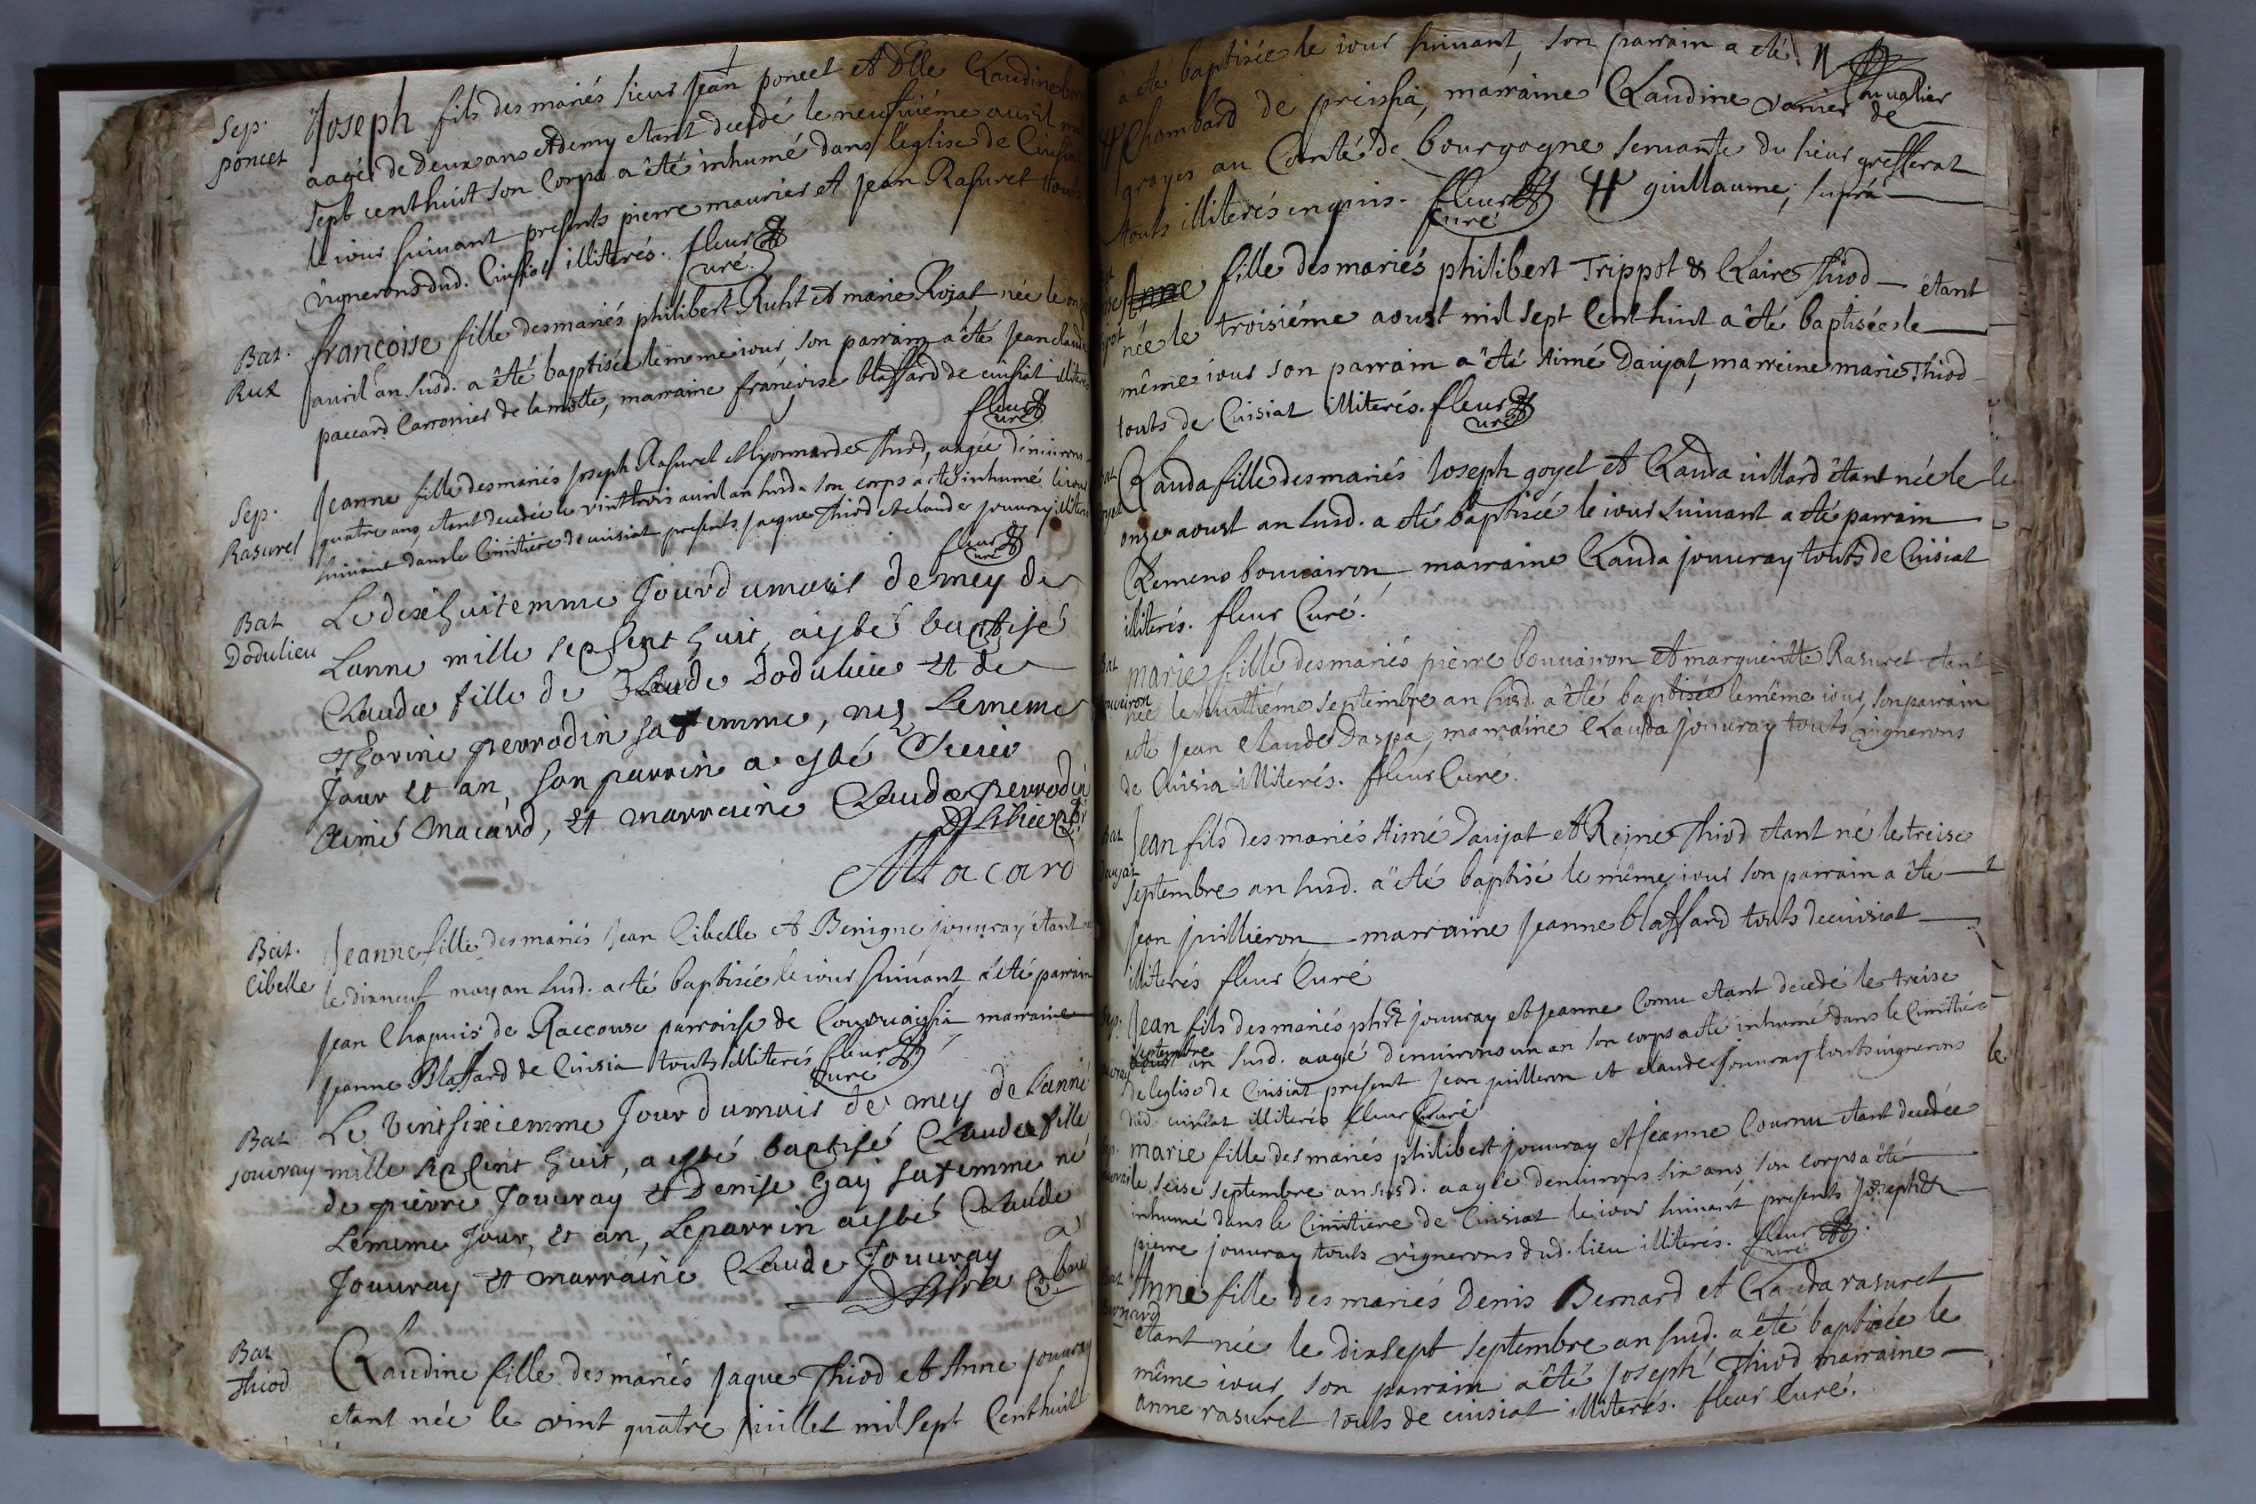 Sep.
poncet
Joseph fils des mariés sieur Jean poncet et Dlle Claudine
aagée de deux ans et demy etant decedé le neufuiéme auril
sept cent huit son corps a été inhumé dans l'église de
le iour suiuant presents pierre maurier et jean Rasuret
vignerons dud. Cuisiat illiterés. fleur
curé
Bat.
Rux
françoise fille des mariés philibert Ruht et marie Rojat née le
auril an susd. a été baptisée le meme iour son parrain a été jean claude
paccard Carronier de la motte, marraine françoise blassard de cuisiat
fleur
curé
Sep.
Rasurel
Jeanne fille des mariés joseph Rasuret et lyonnarde Thiod, aagée d'enuirons
quatre ans etant decedée le vint trois auril an susd. son corps a été inhumé
suiuant dans le Cimitiere de cuisiat presents jaque Thiod et claude jouuray
fleur
curé
Bat
Dodulieu
Le dixehuitemme Jour du mois de mey de
Lanne mille sep sent huit, aysté baptisé
Claudæ fille de Claude Dodulieu et de
perrodin sa femme, Lememe
Jour et an, son parrin a ysté
Aimé Macard, et marraine Claudæ perrodin
Macard
Bat.
Cibelle
Jeanne fille des mariés jean Cibelle et Benigne jouuray étant
le dixneuf may an susd. a été baptisée le iour suiuant a été parrain
jean Chapuis de Raccouse parroisse de marraine
jeanne Blassard de Cuisia touts illiterés fleur
curé
Bat
jouuray
Le vintsixiemme Jour dumois de mey de Lanné
mille sep sent huit, a ysté baptisé Claudæ fille
de pierre Jouuray et Denise gay sa femme né
Lememe Jour, et an, Leparrin aysté Claude
Jouuray et marraine Claude Jouuray
Bat
Thiod
Claudine fille des mariés jaque Thiod et Anne jouuray
etant née le vint quatre juillet mil sept Cent huit
a été baptisée le iour suiuant, son parrain a été
Chambard de preissia, marraine Claudine varnier de
grayes au Comté de bourgogne seruante du sieur gresserat
touts illiterés enquis. fleur guillaume, supra
curé
fille des mariés philibert Trippot & Claire Thiod étant
née le troisiéme aoust mil sept Cent huit a été baptisée le
même iour son parrain a été Aimé Daujat, marreine marie Thiod
touts de Cuisiat illiterés. fleur
curé
Clauda fille des mariés Joseph goyet et Clauda uillard étant née le
onze aoust an susd. a été baptisée le iour suiuant a été parrain
Clemens bouuairon marraine Clauda jouuray touts de Cuisiat
illiterés. fleur Curé.
Bat
marie fille des mariés pierre bouuairon et margueritte Rasuret etant
née le huittiéme septembre an susd. a été baptisée le même iour, son parrain
été jean claude Daspa, marraine Clauda jouuray touts vignerons
de Cuisia illiterés. fleur Curé.
Bat
Daujat
Jean fils des mariés Aimé Daujat et Reine Thiod etant né le treise
septembre an susd. a été baptisé le même iour son parrain a été
jean juillieron marraine jeanne blassard touts de cuisiat
illiterés fleur Curé
Sep.
Jean fils des mariés phibt jouuray et jeanne Cornu etant decedé le treise
septembre
an susd. aagé denuirons un an son corps a été inhumé dans le Cimitiére
de leglise de Cuisiat present jean juilleron et claude jouuray touts uignerons
dud. cuisiat illiterés fleur Curé
marie fille des mariés philibert jouuray et jeanne Cournu etant decedée
le seise septembre an susd. aagée denuirons six ans, son corps a été
inhumé dans le Cimitiere de Cuisiat le iour suiuant presents Joseph &
pierre jouuray touts vignerons dud. lieu illiterés. fleur
curé
Bat
Bernard
Anne fille des mariés Denis Bernard et Clauda rasuret
etant née le dixsept septembre an susd. a été baptisée le
même iour, son parrain a été joseph Thiod marraine
anne rasuret touts de cuisiat illiterés. fleur Curé.